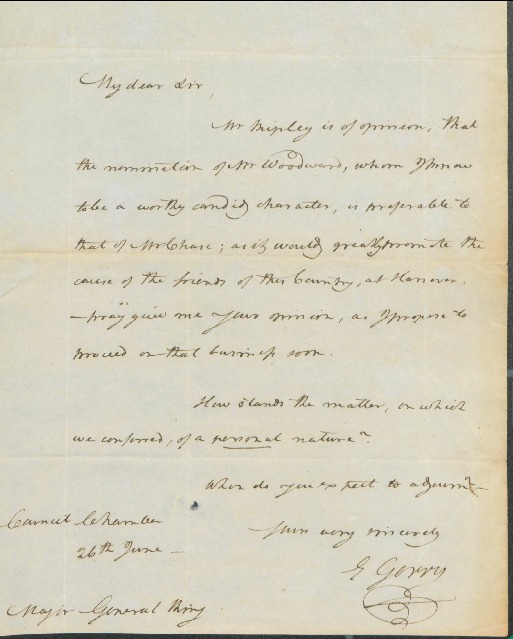 My dear Sir,
Mr Ripley is of opinion, that
the nomination of Mr Woodward, whom I know
to be a worthy candid character, is preferable to
that of Mr Chase; as it would greatly promote the
cause of the friends of this Country, at Hanover.
— pray give me your opinion, as I propose to
proceed on that business soon.
How stands the matter, on which
we conferred, of a personal nature?
When do you expect to adjourn? —
Yours very sincerely
E Gerry
Council Chamber
26th June —
Major General King